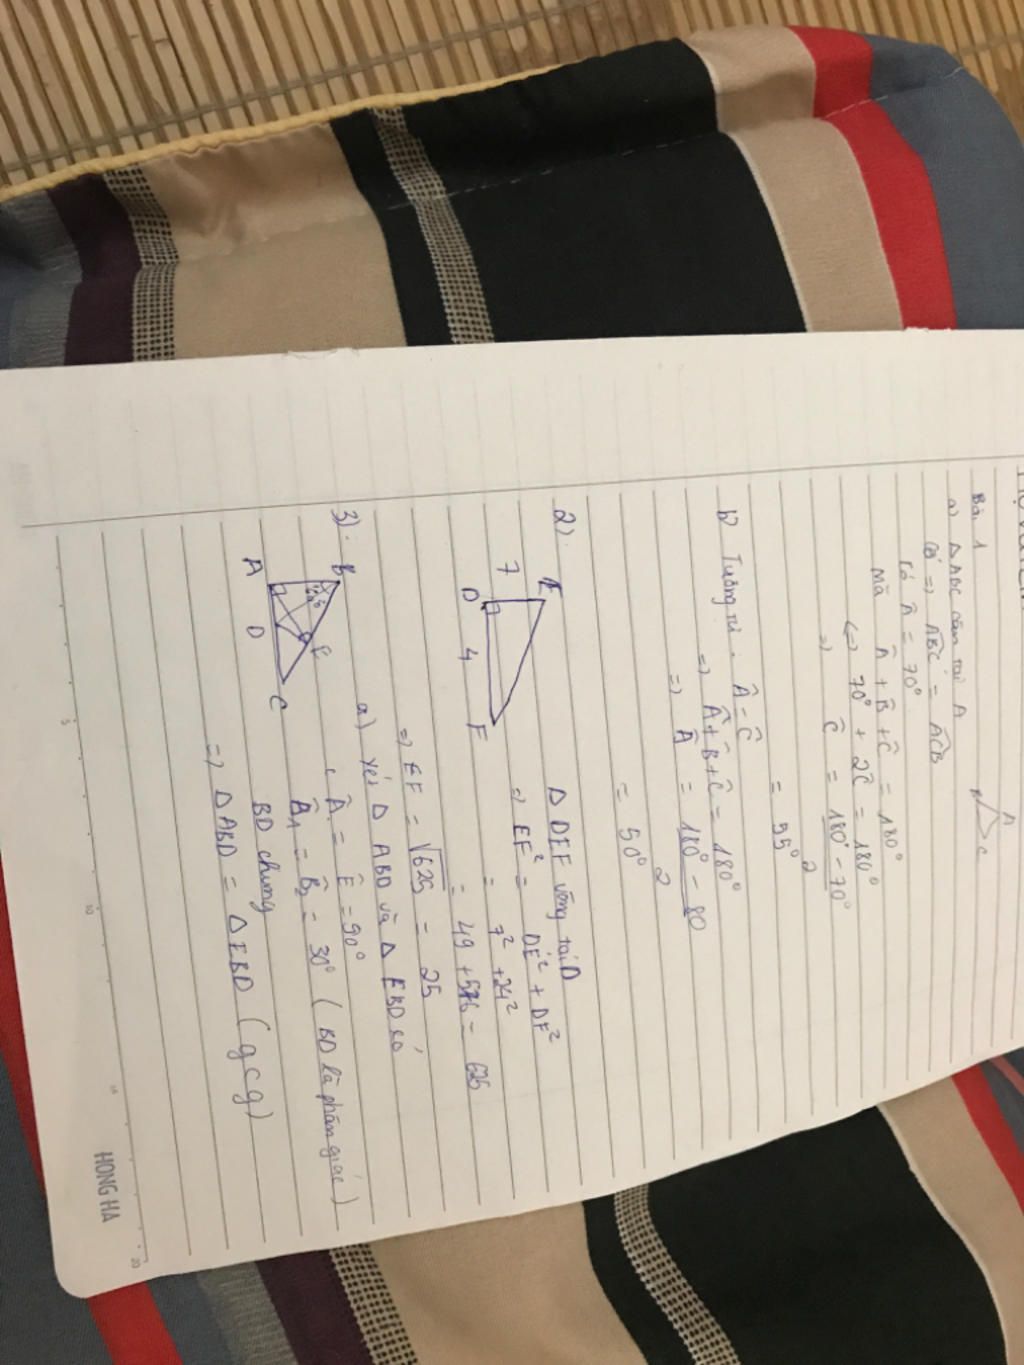 Bài 1
a) Δ ABC cân tại A
=> ABC = ACB
Có Â = 70°
Mà Â + B̂ + Ĉ = 180°
<=> 70° + 2Ĉ = 180°
=> Ĉ = 180° - 70°
2
= 55°
A
C
b) Tương tự : Â = Ĉ
=> Â + B̂ + Ĉ = 180°
=> Â = 180° - 80
2
= 50°
2).
E
7
D
4
F
Δ DEF vuông tại D
=> EF² = DE² + DF²
= 7² + 24²
= 49 + 576 = 625
=> EF = √625 = 25
3).
B
A
D
E
C
a) Xét Δ ABD và Δ EBD có
Â = Ê = 90°
B̂₂ = 30° ( BD là phân giác )
BD chung
=> Δ ABD = Δ EBD ( gcg )
HONG HA
5
10
20